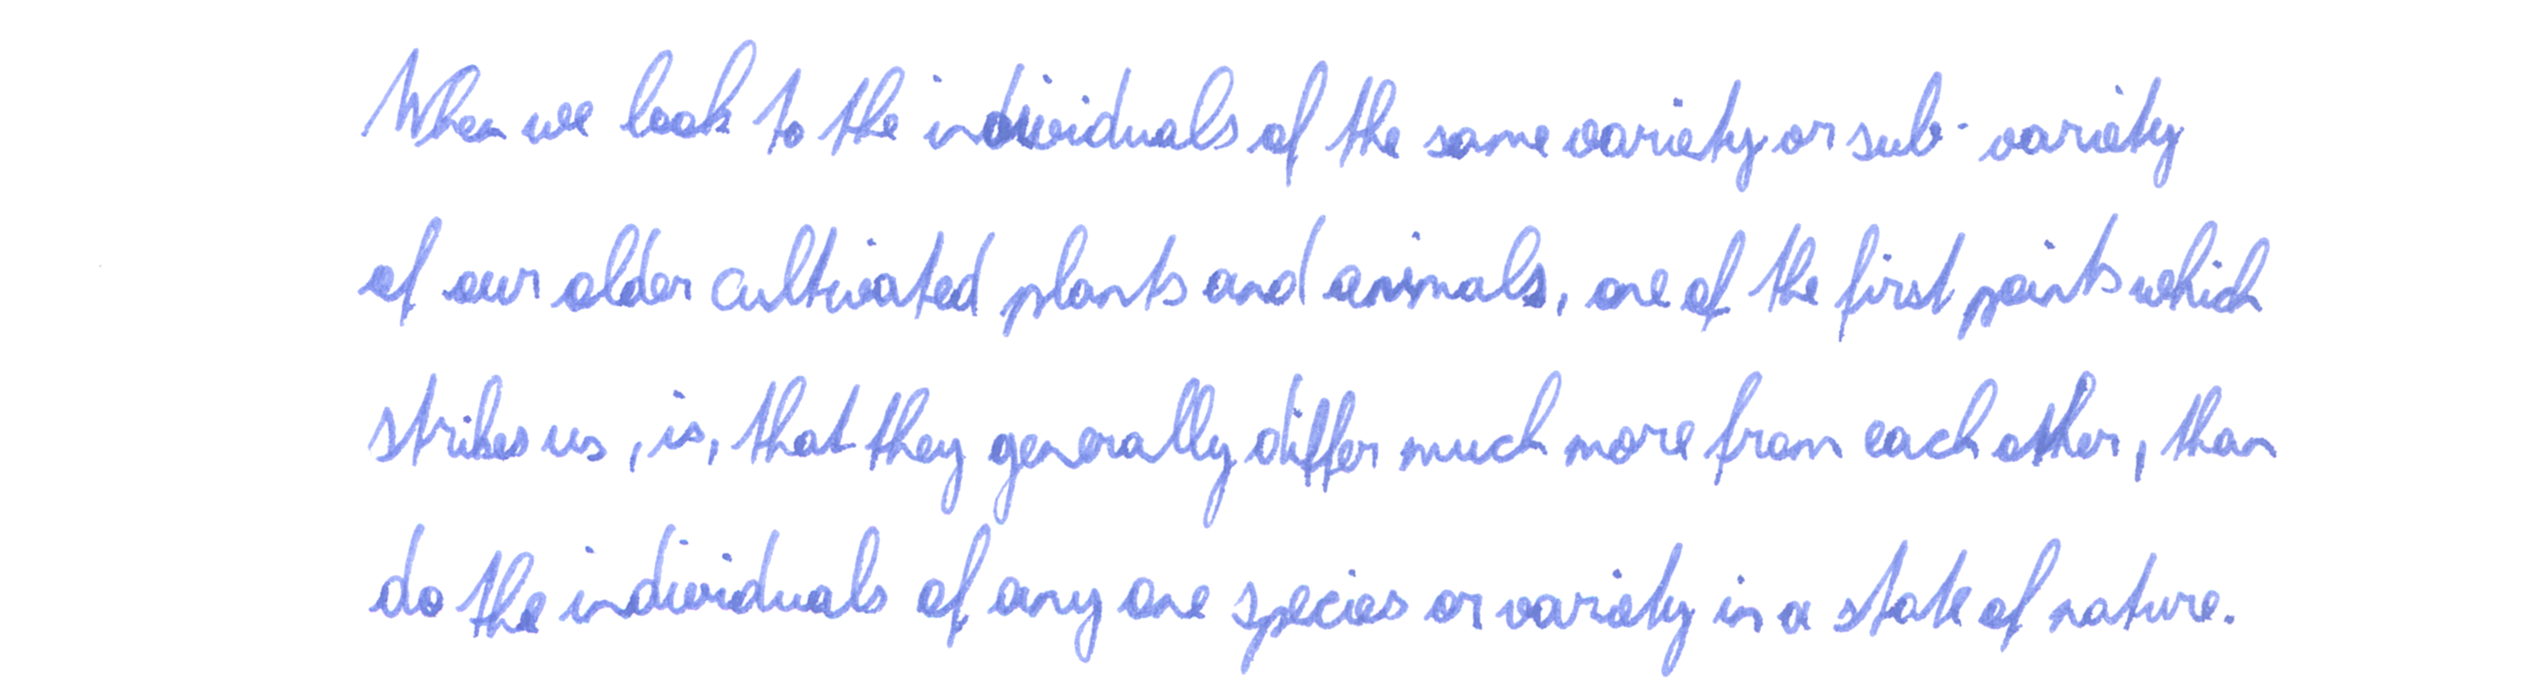 When we look to the individuals of the same variety or sub-variety
of our older cultivated plants and animals, one of the first points which
strikes us, is, that they generally differ much more from each other, than
do the individuals of any one species or variety in a state of nature.